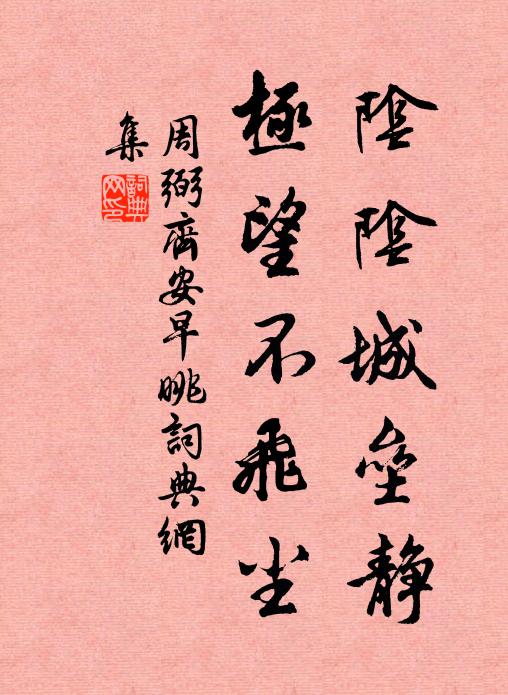 陰陰城壘静
極望不飛尘
周弼齊安早眺詞典網
集
詞典网印